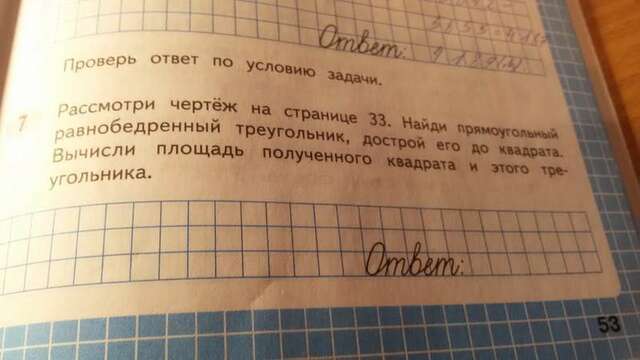 Ответ:
Проверь ответ по условию задачи.
7 Рассмотри чертёж на странице 33. Найди прямоугольный
равнобедренный треугольник, дострой его до квадрата.
Вычисли площадь полученного квадрата и этого тре-
угольника.
Ответ:
53